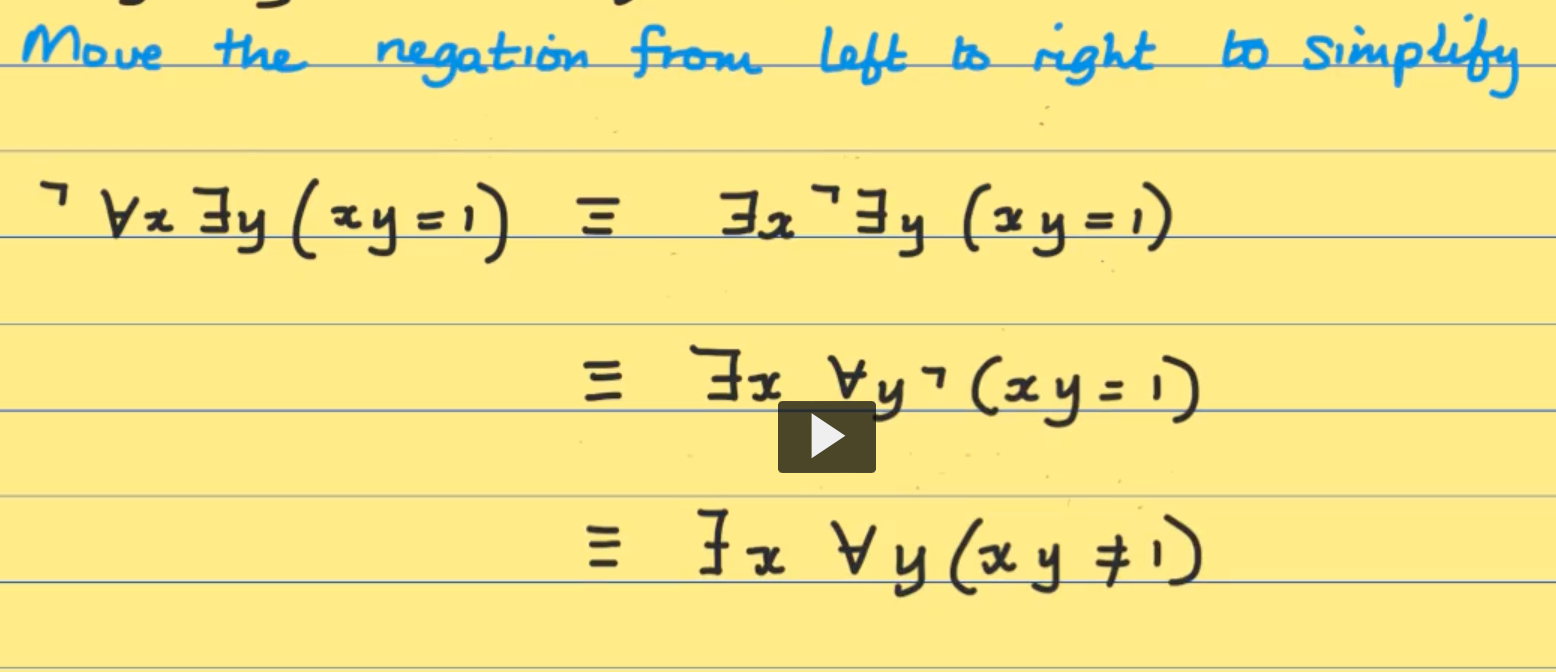 Move the negation from left to right to simplify
¬ ∀x ∃y (xy = 1) ≡ ∃x ¬ ∃y (xy = 1)
≡ ∃x ∀y ¬ (xy = 1)
≡ ∃x ∀y (xy ≠ 1)